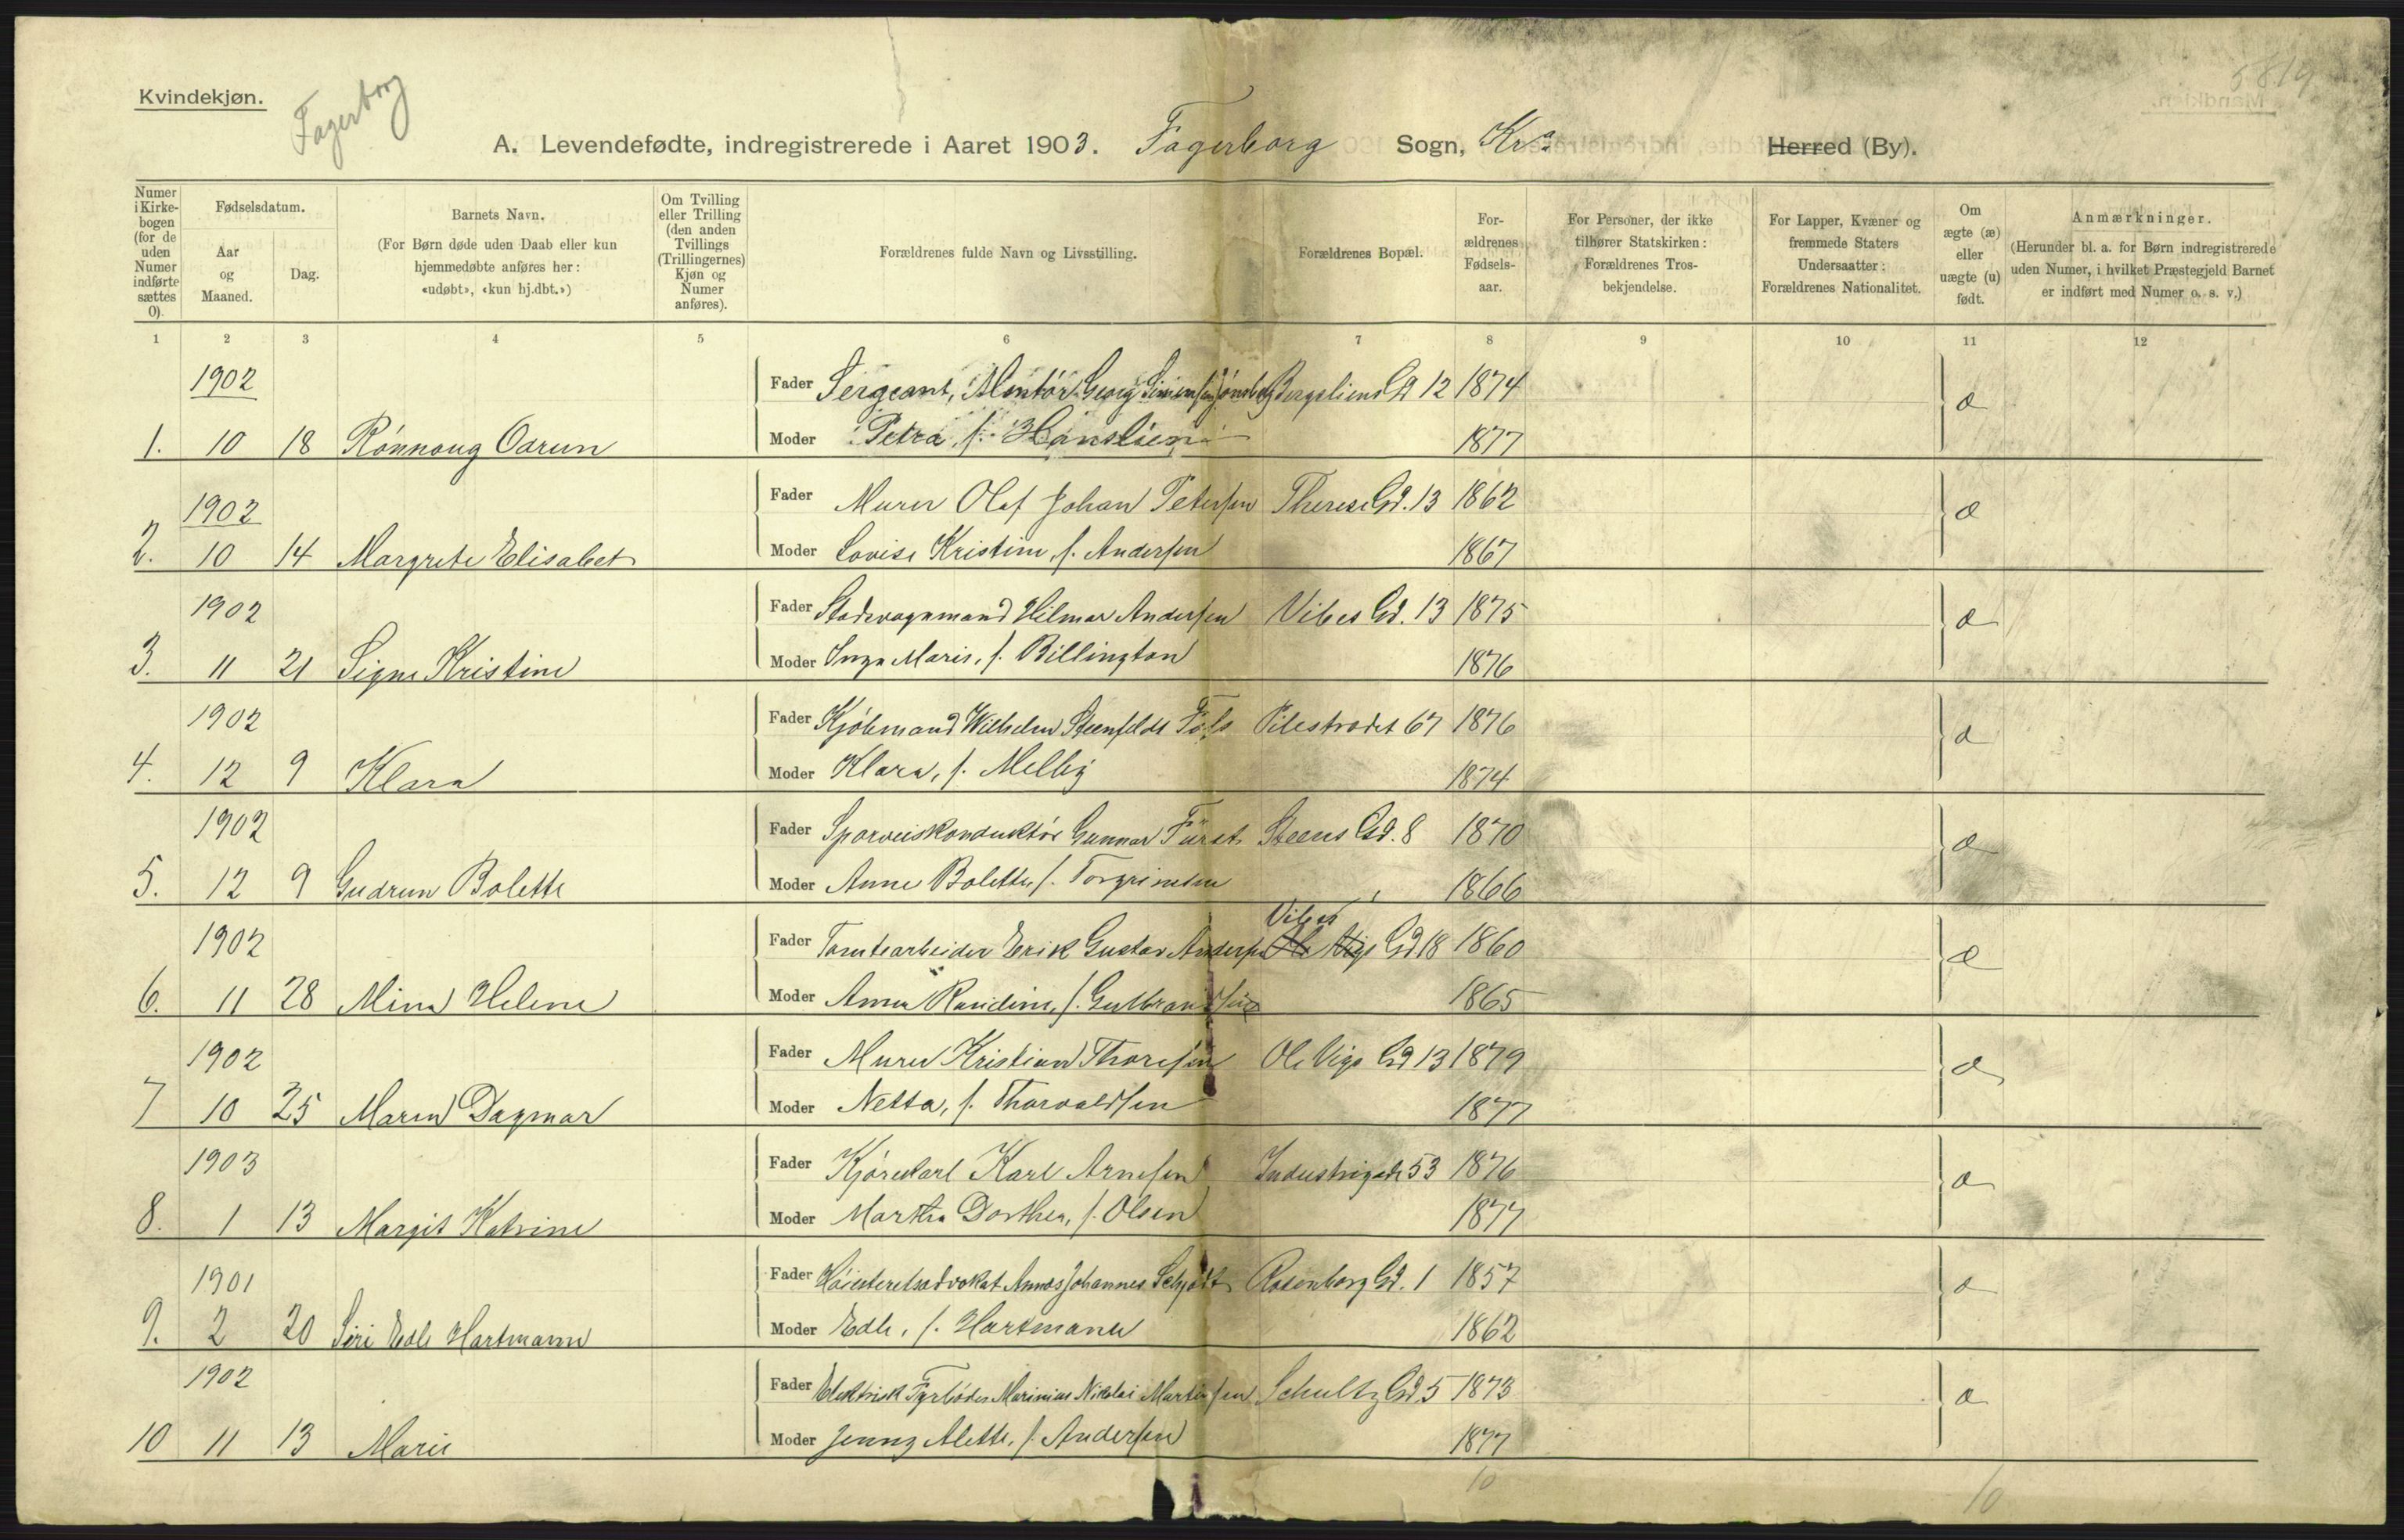 Kvindekjøn.
Fagerborg
5819
A. Levendefødte, indregistrerede i Aaret 1903. Fagerborg Sogn, Kra Herred (By).
Numer i Kirkebogen (for de uden Numer indførte sættes 0).
Fødselsdatum.
Aar og Maaned.
Dag.
Barnets Navn.
(For Børn døde uden Daab eller kun hjemmedøbte anføres her: «udøbt», «kun hj.dbt.»)
Om Tvilling eller Trilling (den anden Tvillings (Trillingernes) Kjøn og Numer anføres).
Forældrenes fulde Navn og Livsstilling.
Forældrenes Bopæl.
For-ældrenes Fødsels-aar.
For Personer, der ikke tilhører Statskirken: Forældrenes Tros-bekjendelse.
For Lapper, Kvæner og fremmede Staters Undersaatter: Forældrenes Nationalitet.
Om ægte (æ) eller uægte (u) født.
Anmærkninger.
(Herunder bl. a. for Børn indregistrerede uden Numer, i hvilket Præstegjeld Barnet er indført med Numer o. s. v.)
1 2 3 4 5 6 7 8 9 10 11 12
1902 Fader Sergeant, Montør Georg Simensen Bergsliens Gd 12 1874 æ
1. 10 18 Rønnaug Oarun Moder Petra, f. Hanslien 1877
1902 Fader Murer Olaf Johan Petersen Therese Gd. 13 1862 æ
2. 10 14 Margrete Elisabet Moder Lovise Kristine, f. Andersen 1867
1902 Fader Stadsvognmand Hilmar Andersen Vibes Gd. 13 1875 æ
3. 11 21 Signe Kristine Moder Inga Marie, f. Billington 1876
1902 Fader Kjøbmand Wilhelm Steenfeldt Føls Pilestrædet 67 1876 æ
4. 12 9 Klara Moder Klara, f. Melby 1874
1902 Fader Sporveiskonduktør Gunnar Fürst Steens Gd. 8 1870 æ
5. 12 9 Gudrun Bolette Moder Anne Bolette, f. Torgrimsen 1866
Vibes
1902 Fader Tomtearbeider Erik Gustav Andersen Ole Vigs Gd 18 1860 æ
6. 11 28 Mina Helene Moder Anna Randine, f. Gulbrandsen 1865
1902 Fader Murer Kristian Thoresen Ole Vigs Gd 13 1879 æ
7 10 25 Maren Dagmar Moder Netta, f. Thorvaldsen 1877
1903 Fader Kjørekarl Karl Arnesen Industrigade 53 1876 æ
8. 1 13 Margit Katrine Moder Martha Dorthea, f. Olsen 1877
1901 Fader Høiesteretsadvokat Annæs Johannes Schjødt Rosenborg Gd. 1 1857 æ
9. 2 20 Siri Edle Hartmann Moder Edle, f. Hartmann 1862
1902 Fader Elektrisk Fyrbøder Marinius Nikolai Martinsen Schultz Gd. 5 1873 æ
10 11 13 Marie Moder Jenny Alette, f. Andersen 1877
10 10